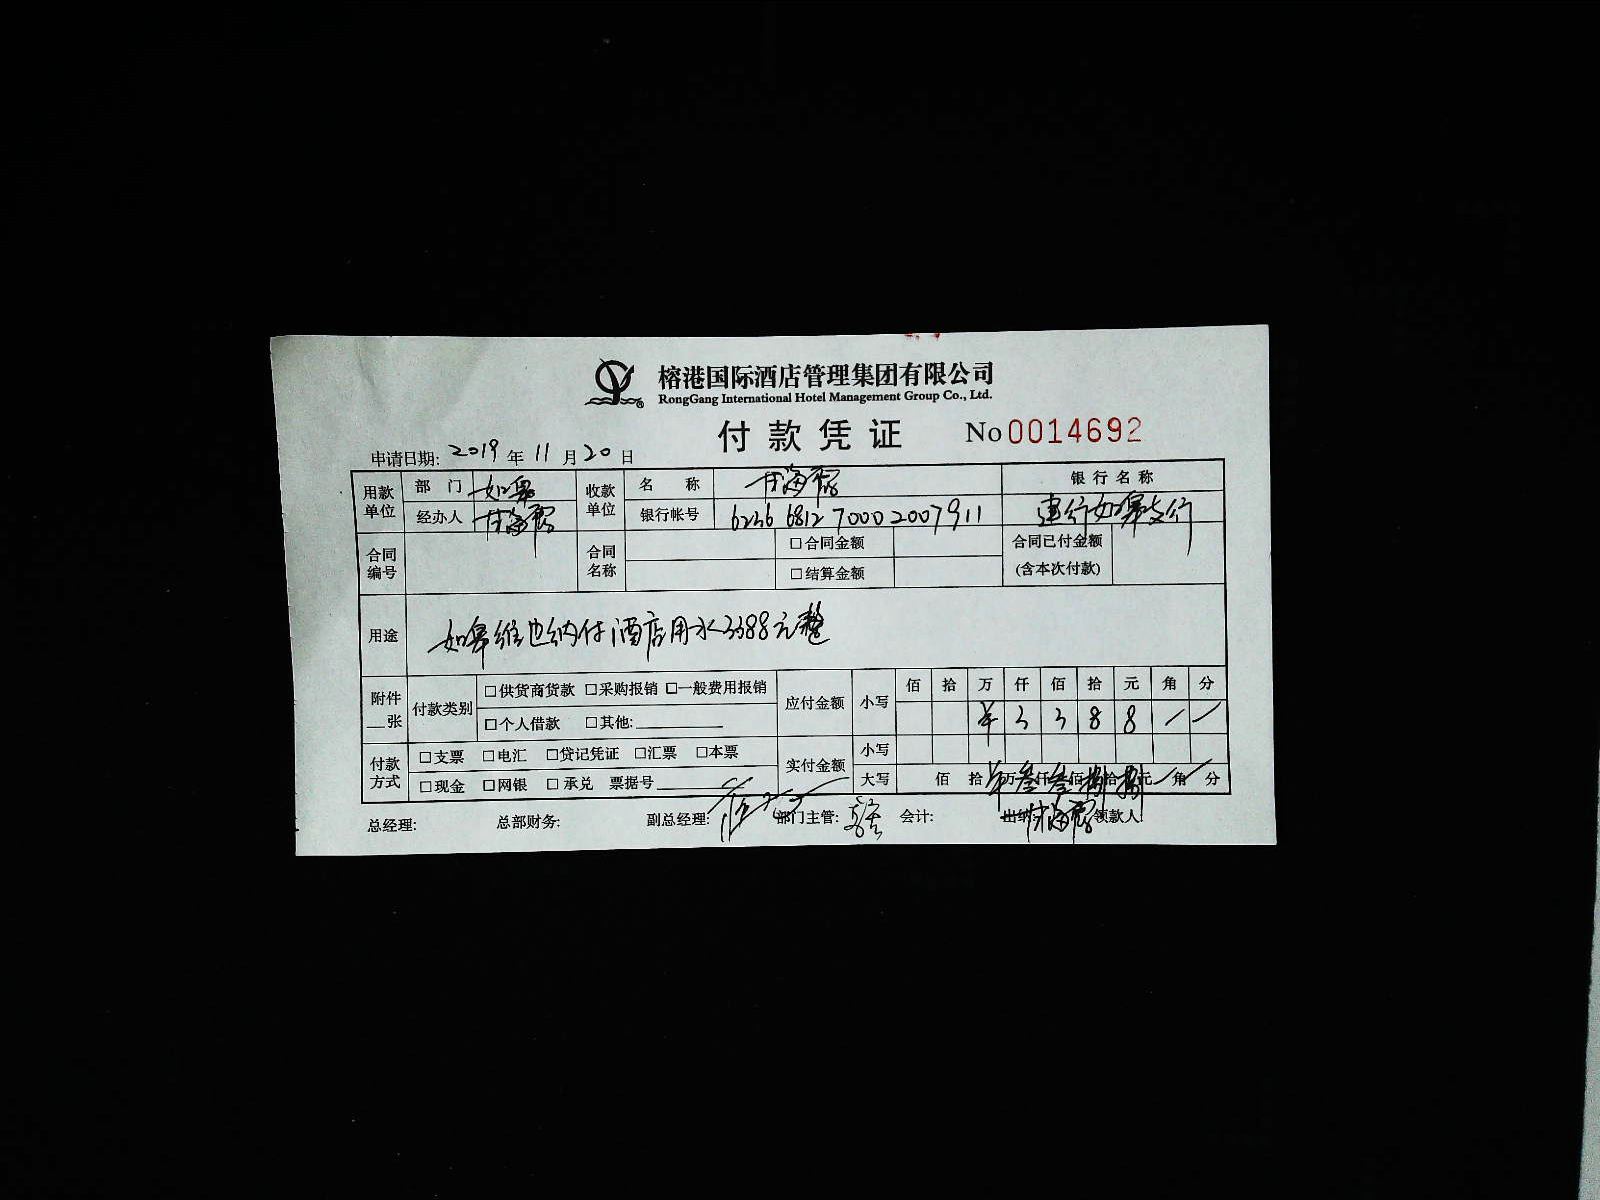 榕港国际酒店管理集团有限公司
RongGang International Hotel Management Group Co., Ltd.
付款凭证 No 0014692
申请日期: 2019 年 11 月 20 日
用款单位 部门 如皋 收款单位 名称 甘海霞 银行名称
经办人 甘海霞 银行帐号 6236 6812 7000 2007911 建行如皋支行
合同编号 合同名称 □合同金额 合同已付金额
□结算金额 (含本次付款)
用途 如皋维也纳付酒店用水3388元整
附件__张 付款类别 □供货商货款 □采购报销 □一般费用报销 应付金额 小写 佰 拾 万 仟 佰 拾 元 角 分
□个人借款 □其他: ¥ 3 3 8 8 / /
付款方式 □支票 □电汇 □贷记凭证 □汇票 □本票 实付金额 小写
□现金 □网银 □承兑 票据号 大写 佰 拾 ¥万叁仟叁佰捌拾捌元 / 角 / 分
总经理: 总部财务: 副总经理: 部门主管: 会计: 出纳: 甘海霞 领款人: